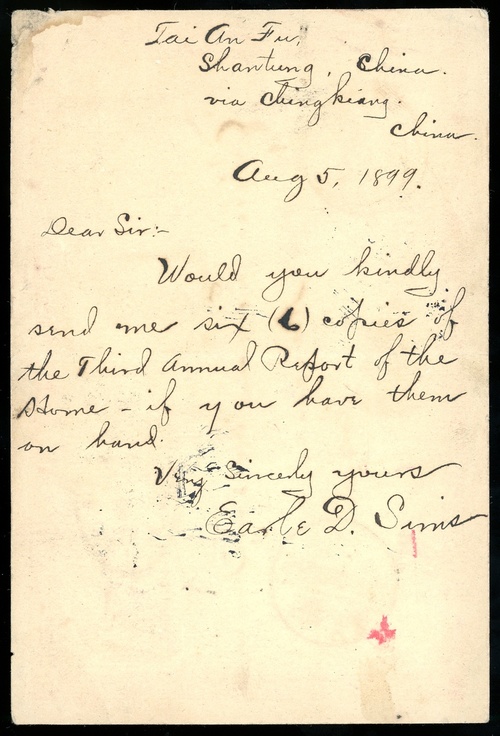 Tai An Fu,
Shantung, China.
via Chingkiang.
China.
Aug 5, 1899.
Dear Sir:-
Would you kindly
send me six (6) copies of
the Third Annual Report of the
Home - if you have them
on hand.
Very Sincerely yours
Earle D. Sims